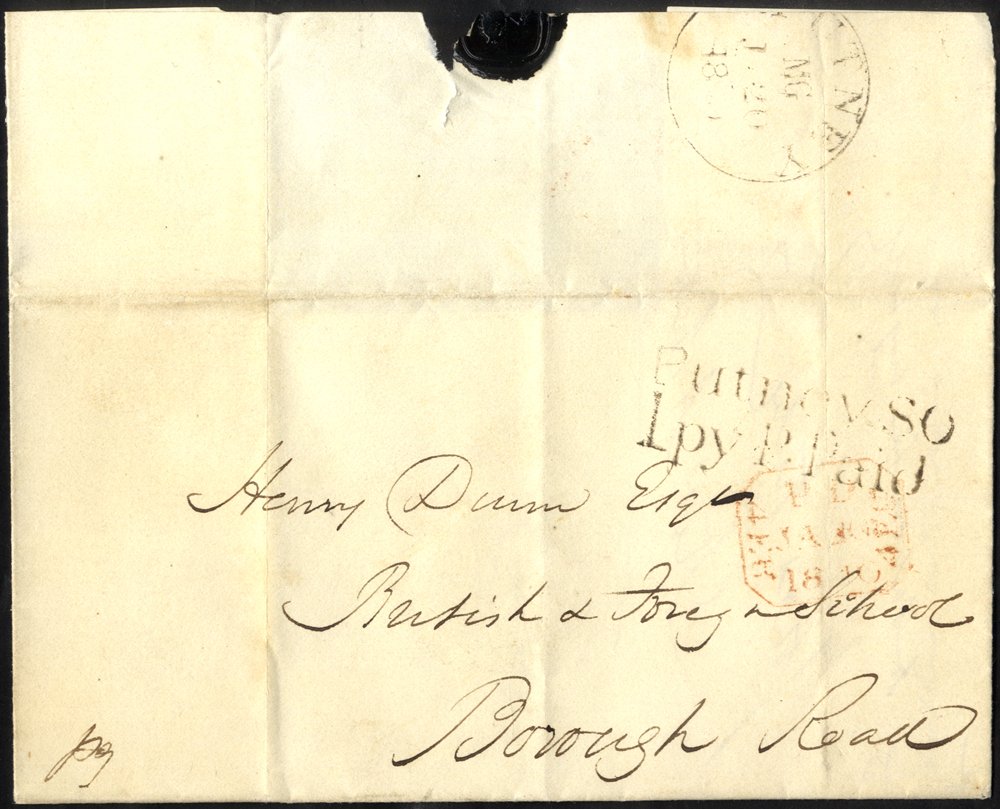 TNEY
MG
Putney.SO
1py P.Paid
Henry Dunn Esqr
PD
JA
18
British & Foreign School
Borough Road